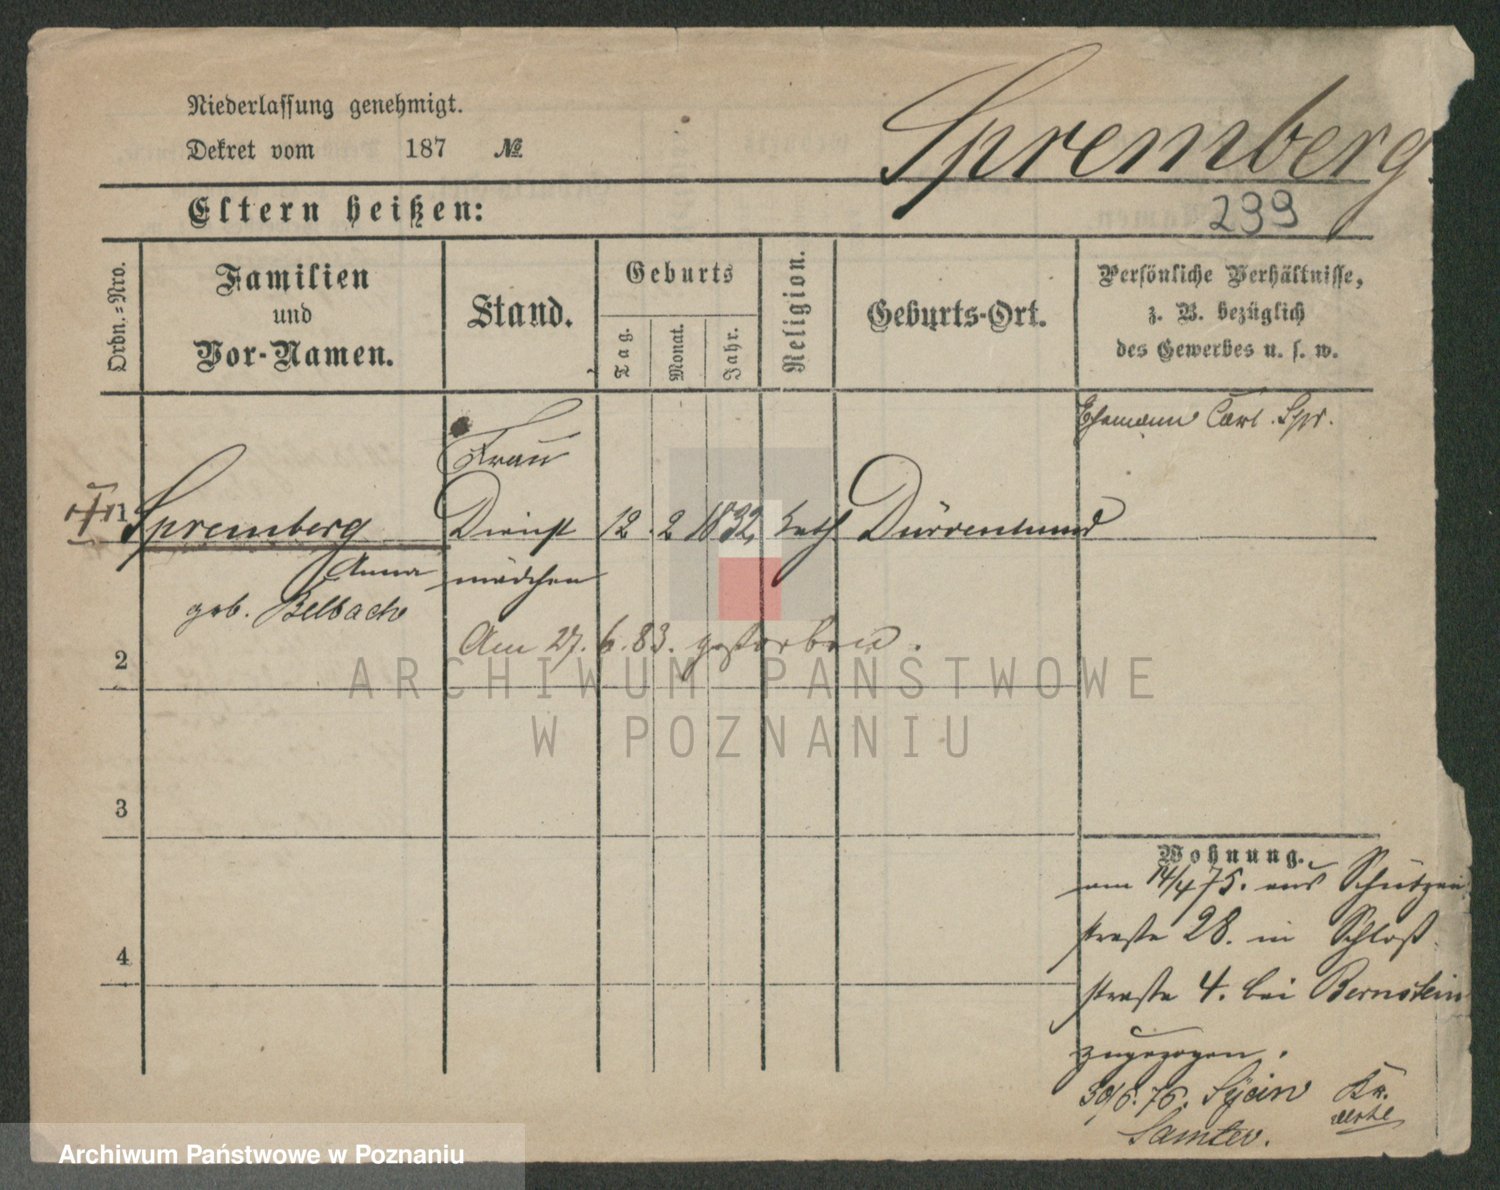 Niederlassung genehmigt.
Dekret vom 187 №
Spremberg
299
Eltern heißen:
Ordn.=Nro.
Familien
und
Vor-Namen.
Stand.
Geburts
Tag.
Monat.
Jahr.
Religion.
Geburts-Ort.
Persönliche Verhältnisse,
z. B. bezüglich
des Gewerbes u. s. w.
Ehemann Carl Spr.
Frau
1 Spremberg Dienst 12. 2 1832 kath
Anna mädchen
geb. Belbach
Am 27. 6. 83. gestorben.
2
3
4
Wohnung.
am 14/4 75. aus Schützen
straße 28. in Schloß
straße 4. bei Bernstein
zugezogen.
30/6. 76. Kr.
Samter.
ARCHIWUM PAŃSTWOWE
W POZNANIU
Archiwum Państwowe w Poznaniu